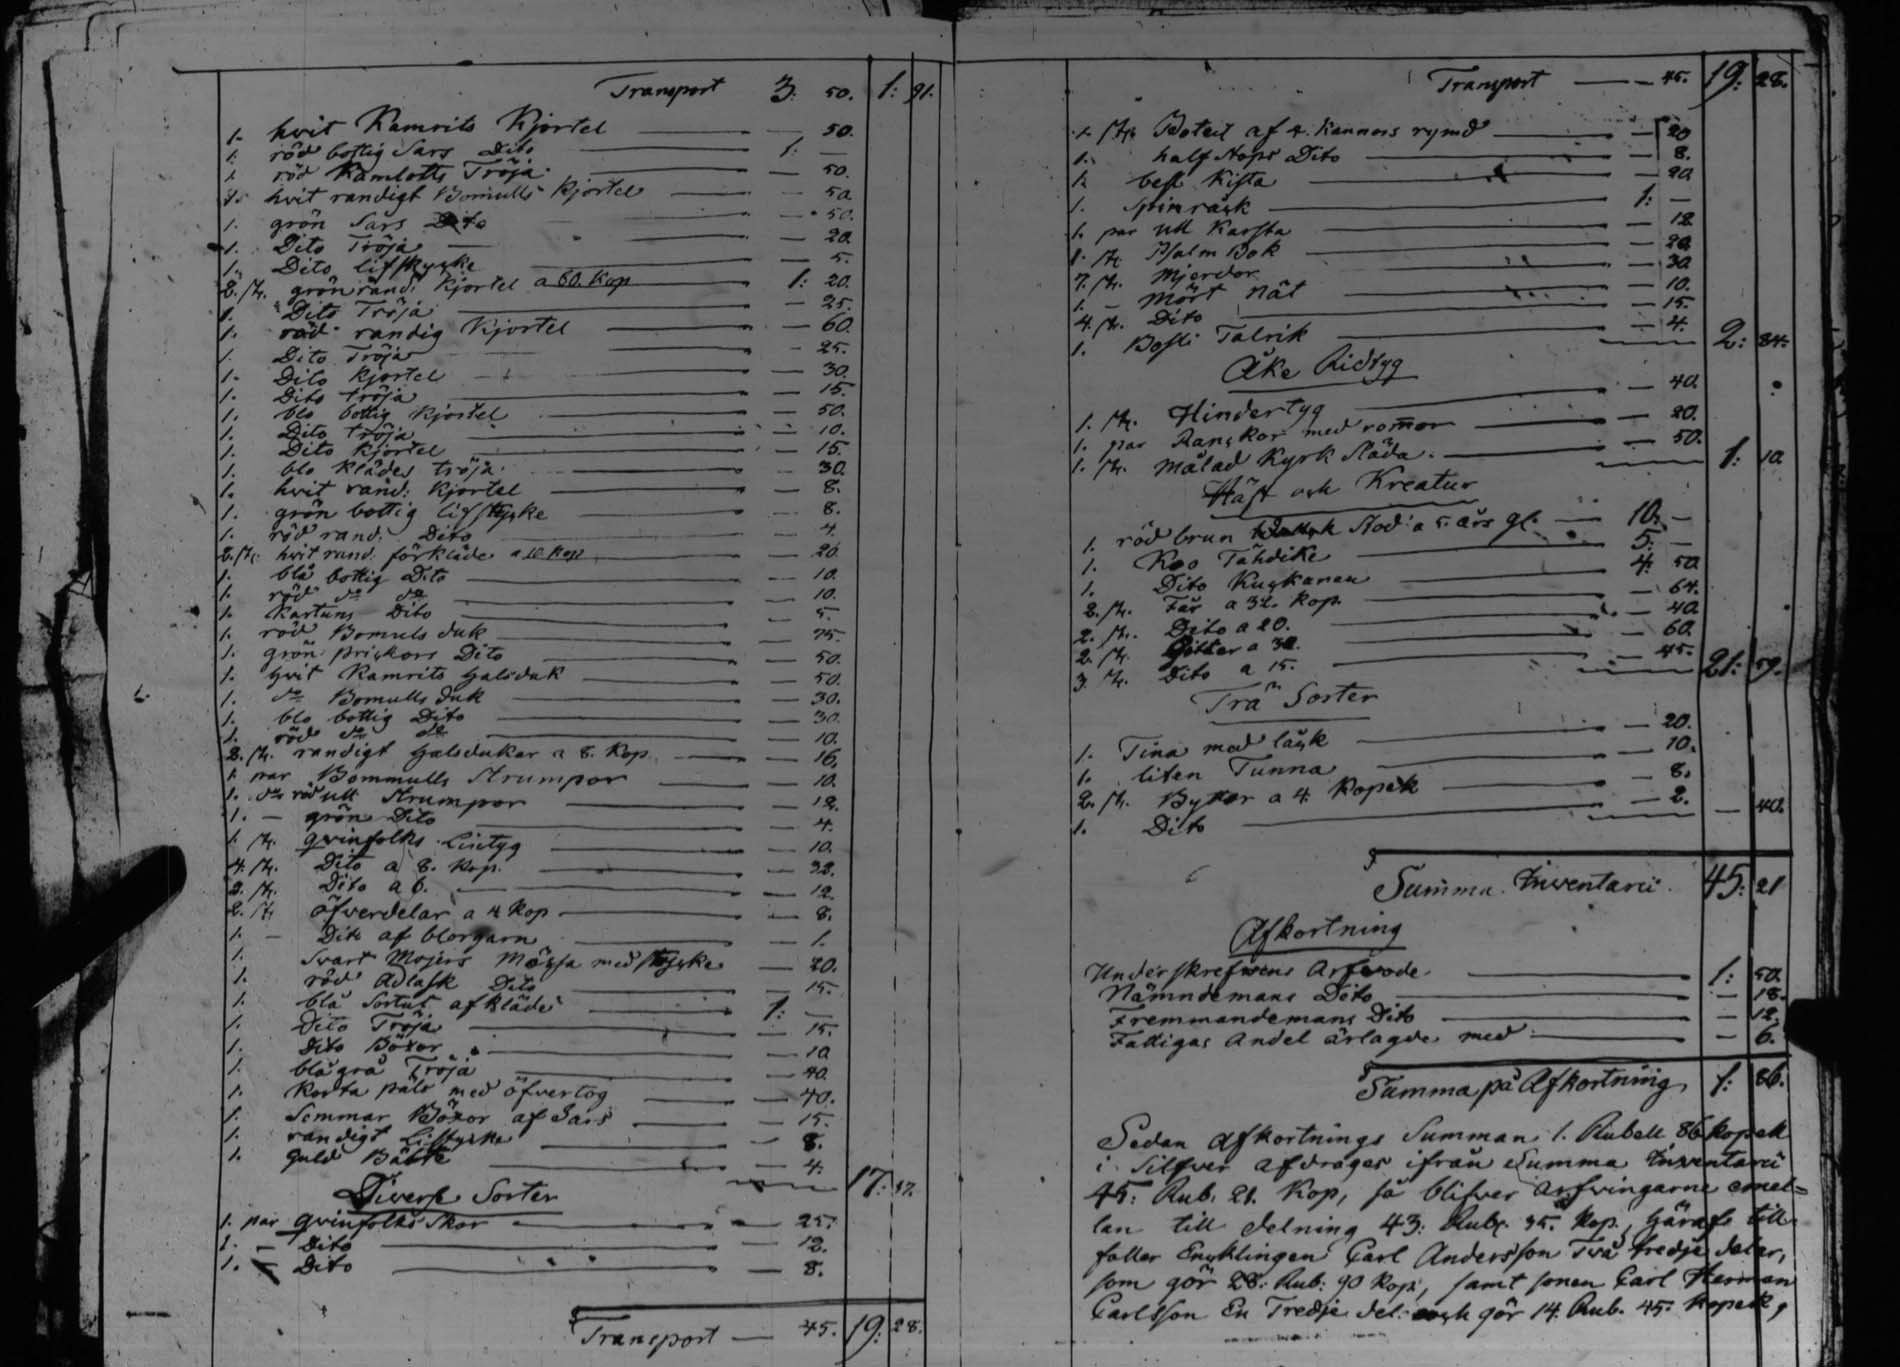 Transport 3: 50. 1: 91.
1. hvit Kamrits Kjortel 50.
1. röd bottig Sars Dito 1: —
1. röd Kamlotts Tröja 50.
1. hvit randigt Bomulls Kjortel 50.
1. grön Sars Dito 50.
1. Dito Tröja 20.
1. Dito lifstycke 5.
2. st. grön rand: Kjortel a 60. Kop 1: 20.
1. Dito Tröja 25.
1. röd randig Kjortel 60.
1. Dito Tröja 25.
1. Dito Kjortel 30.
1. Dito tröja 15.
1. blo bottig Kjortel 50.
1. Dito tröja 10.
1. Dito Kjortel 15.
1. blo Klädes tröja 30.
1. hvit rand: Kjortel 8.
1. grön bottig lifstycke 8.
1. röd rand. Dito 4.
2. st. hvit rand. förkläde a 10 Kop 20.
1. blå bottig Dito 10.
1. röd do do 10.
1. Kartuns Dito 5.
1. röd Bomuls duk 75.
1. grön prickors Dito 50.
1. hvit Kamrits halsduk 50.
1. do Bomulls duk 30.
1. blo bottig Dito 30.
1. röd do do 10.
2. st. randigt halsdukar a 8. Kop. 16.
1. par Bommulls Strumpor 10.
1. do röd ull Strumpor 12.
1. — grön Dito 4.
1. st. qvinfolks Lintyg 10.
4. st. Dito a 8. Kop. 32.
2. st. Dito a 6. 12.
2. st. öfverdelar a 4 Kop 8.
1. — Dito af blorgarn 1.
1. Svart Mojers Mössa med stycke 20.
1. röd Adlask Dito 15.
1. blå Sortut af kläde 1: —
1. Dito Tröja 15.
1. Dito Böxor 10
1. blågrå Tröja 40.
1. Korta päls med öfvertog 40.
1. Sommar Böxor af Sars 15.
1. randigt Lifstycke 8.
1. guld Bälte 4. 17: 37.
Diverse Sorter
1. par qvinfolks Skor 25.
1. — Dito 12.
1. — Dito 8.
Transport — 45. 19: 28.
Transport — 45. 19: 28.
1. st. Boteil af 4. Kannors rymd 20
1. half stops Dito 8.
1. besl. Kista 20
1. Spinråck 1: —
1. par ull Karsta 12
1. st. Psalm Bok 20.
7. st. Mjerdor 30
1. — Mört Nät 10.
4. st. Dito 15.
1. Bosli Talrik 4. 2: 84.
Åke Ridtyg
1. st. Hindertyg 40.
1. par Ranckor med rom̄or 20.
1. st. målad Kyrk Släda. 50. 1: 10.
Häst och Kreatur
1. röd brun Stod a 5. års gl. 10. —
1. Koo Tähdike 5: —
1. Dito Kuckanen 4: 50
2. st. Får a 32. Kop. 64.
2. st. Dito a 20. 40
2. st. Götter a 30. 60.
3. st. Dito a 15. 45. 21: 59.
Trä Sorter
1. Tina med låck 20.
1. liten Tunna 10.
2. st. Byttor a 4. Kopek 8.
1. Dito 2. — 40.
Sum̄a. Inventarii. 45: 21
Afkortning
Underskrefwens Arfwode. 1: 50.
Nämndemans Dito — 18.
Fremmandemans Dito — 12.
Fattigas andel ärlagde med — 6.
Summa på Afkortning, 1: 86.
Sedan afkortnings Summan 1. Rubell 86 kopek
i Silfver afdrages ifrån Summa Inventarii
45: Rub. 21. Kop, så blifver arfvingarne emel=
lan till delning 43: Rub. 35. Kop, häraf till
faller Encklingen Carl Andersson Två tredje delar,
som gör 28: Rub: 90 Kop, samt sonen Carl Herman
Carlsson En Tredje del: och gör 14. Rub. 45. Kopek,